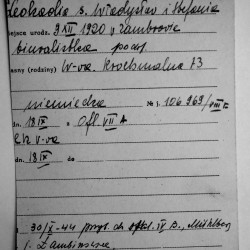 Leokadia s. Władysław i Stefania
miejsce urodz. 9 XII 1920 w Zambrowie
biuralistka
asny (rodziny) W-wa. Krochmalna 73
niemiecka № j. 106969/VIII C
dn. 18 IX o Ofl. VII A
W-wa
dn. 18 IX do
30/X-44 przyb. do IV B., Mühlberg
z Lambinowic